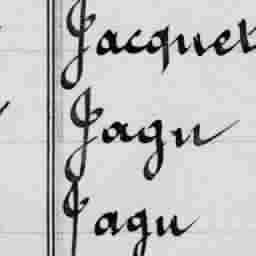 Jacquet
Jagu
Jagu